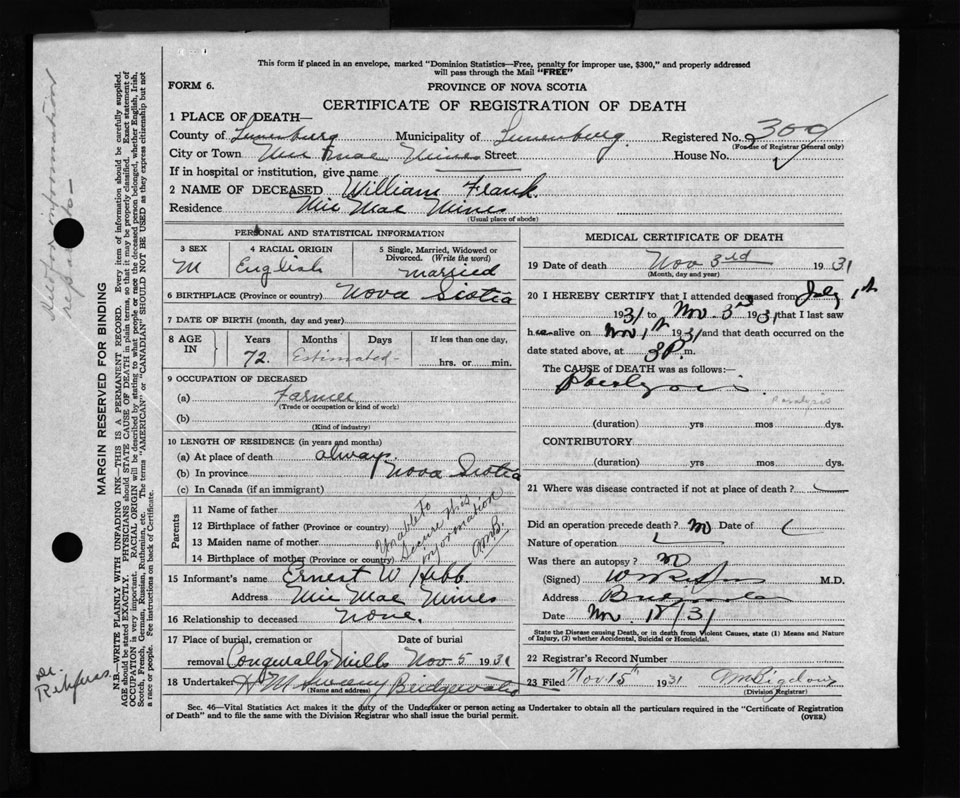 This form if placed in an envelope, marked "Dominion Statistics—Free, penalty for improper use, $300," and properly addressed
will pass through the Mail "FREE"
FORM 6.
PROVINCE OF NOVA SCOTIA
CERTIFICATE OF REGISTRATION OF DEATH
1 PLACE OF DEATH—
County of Lunenburg Municipality of Lunenburg Registered No. 300
(For use of Registrar General only)
City or Town Mic Mac Mines Street House No.
If in hospital or institution, give name
2 NAME OF DECEASED William Frank.
Residence Mic Mac Mines
(Usual place of abode)
PERSONAL AND STATISTICAL INFORMATION
3 SEX
M
4 RACIAL ORIGIN
English
5 Single, Married, Widowed or
Divorced. (Write the word)
married
6 BIRTHPLACE (Province or country) Nova Scotia
7 DATE OF BIRTH (month, day and year)
8 AGE IN
Years Months Days If less than one day,
72. Estimated - hrs. or min.
9 OCCUPATION OF DECEASED
(a) Farmer
(Trade or occupation or kind of work)
(b)
(Kind of industry)
10 LENGTH OF RESIDENCE (in years and months)
(a) At place of death always.
(b) In province Nova Scotia
(c) In Canada (if an immigrant)
Parents
11 Name of father
12 Birthplace of father (Province or country)
13 Maiden name of mother
14 Birthplace of mother (Province or country)
Unable to
secure this
information
15 Informant's name Ernest W Hebb.
Address Mic Mac Mines
16 Relationship to deceased None.
17 Place of burial, cremation or Date of burial
removal Conquralls Mills Nov 5 1931
18 Undertaker H M Swany Bridgewater
(Name and address)
MEDICAL CERTIFICATE OF DEATH
19 Date of death Nov 3rd 1931
(Month, day and year)
20 I HEREBY CERTIFY that I attended deceased from July 1st
1931 to Nov. 3rd 1931 that I last saw
h alive on Nov 1st 1931 and that death occurred on
date stated above, at 3 P. m.
The CAUSE of DEATH was as follows:—
Paralysis
Paralysis
(duration) yrs mos dys.
CONTRIBUTORY
(duration) yrs mos dys.
21 Where was disease contracted if not at place of death?
Did an operation precede death? no Date of
Nature of operation
Was there an autopsy? no
(Signed) M.D.
Address Bridgewater
Date Nov. 31
State the Disease causing Death, or in death from Violent Causes, state (1) Means and Nature
of Injury, (2) whether Accidental, Suicidal or Homicidal.
22 Registrar's Record Number
23 Filed Nov 15th 1931 AM Bigelow
(Division Registrar)
Sec. 46—Vital Statistics Act makes it the duty of the Undertaker or person acting as Undertaker to obtain all the particulars required in the "Certificate of Registration
of Death" and to file the same with the Division Registrar who shall issue the burial permit. (OVER)
MARGIN RESERVED FOR BINDING
N.B.—WRITE PLAINLY WITH UNFADING INK—THIS IS A PERMANENT RECORD. Every item of information should be carefully supplied.
AGE should be stated EXACTLY. PHYSICIANS should STATE CAUSE OF DEATH in plain terms, so that it may be properly classified. Exact statement of
OCCUPATION is very important. RACIAL ORIGIN will be described by stating to what people or race the deceased person belonged, whether English, Irish,
Scotch, French, German, Russian, Ruthenian, etc. The terms "AMERICAN" or "CANADIAN" SHOULD NOT BE USED as they express citizenship but not
a race or people. See instructions on back of Certificate.